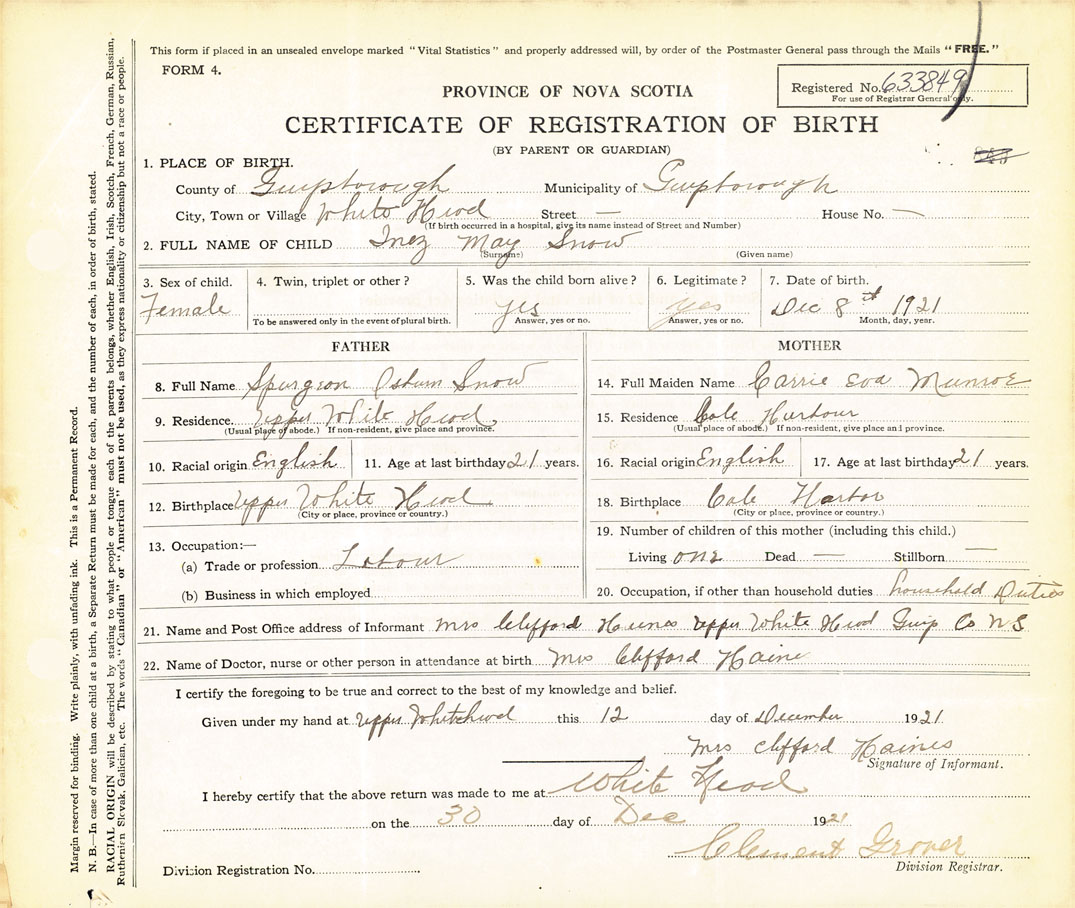 This form if placed in an unsealed envelope marked "Vital Statistics" and properly addressed will, by order of the Postmaster General pass through the Mails "FREE."
FORM 4.
Registered No. 633849
For use of Registrar General only.
PROVINCE OF NOVA SCOTIA
CERTIFICATE OF REGISTRATION OF BIRTH
(BY PARENT OR GUARDIAN)
1. PLACE OF BIRTH.
County of Guysborough Municipality of Guysborough
City, Town or Village White Head Street — House No. —
(If birth occurred in a hospital, give its name instead of Street and Number)
2. FULL NAME OF CHILD Inez May Snow
(Surname) (Given name)
3. Sex of child. 4. Twin, triplet or other? 5. Was the child born alive? 6. Legitimate? 7. Date of birth.
Female yes yes Dec 8th 1921
To be answered only in the event of plural birth. Answer, yes or no. Answer, yes or no. Month, day, year.
FATHER MOTHER
8. Full Name Spurgeon Osburn Snow 14. Full Maiden Name Carrie Eva Munroe
9. Residence. Upper White Head 15. Residence Cole Harbour
(Usual place of abode.) If non-resident, give place and province. (Usual place of abode.) If non-resident, give place and province.
10. Racial origin English 11. Age at last birthday 21 years. 16. Racial origin English 17. Age at last birthday 21 years.
12. Birthplace Upper White Head 18. Birthplace Cole Harbor
(City or place, province or country.) (City or place, province or country.)
13. Occupation:— 19. Number of children of this mother (including this child.)
(a) Trade or profession Labour Living one Dead — Stillborn —
(b) Business in which employed 20. Occupation, if other than household duties household Duties
21. Name and Post Office address of Informant Mrs Clifford Haines Upper White Head Guys Co N S
22. Name of Doctor, nurse or other person in attendance at birth Mrs Clifford Haine
I certify the foregoing to be true and correct to the best of my knowledge and belief.
Given under my hand at Upper Whitehead this 12 day of December 1921
Mrs Clifford Haines
Signature of Informant.
I hereby certify that the above return was made to me at White Head
on the 30 day of Dec 1921
Clement Grover
Division Registrar.
Division Registration No.
Margin reserved for binding. Write plainly, with unfading ink. This is a Permanent Record.
N. B.—In case of more than one child at a birth, a Separate Return must be made for each, and the number of each, in order of birth, stated.
RACIAL ORIGIN will be described by stating to what people or tongue each of the parents belongs, whether English, Irish, Scotch, French, German, Russian,
Ruthenien Slovak, Galician, etc. The words "Canadian" or "American" must not be used, as they express nationality or citizenship but not a race or people.